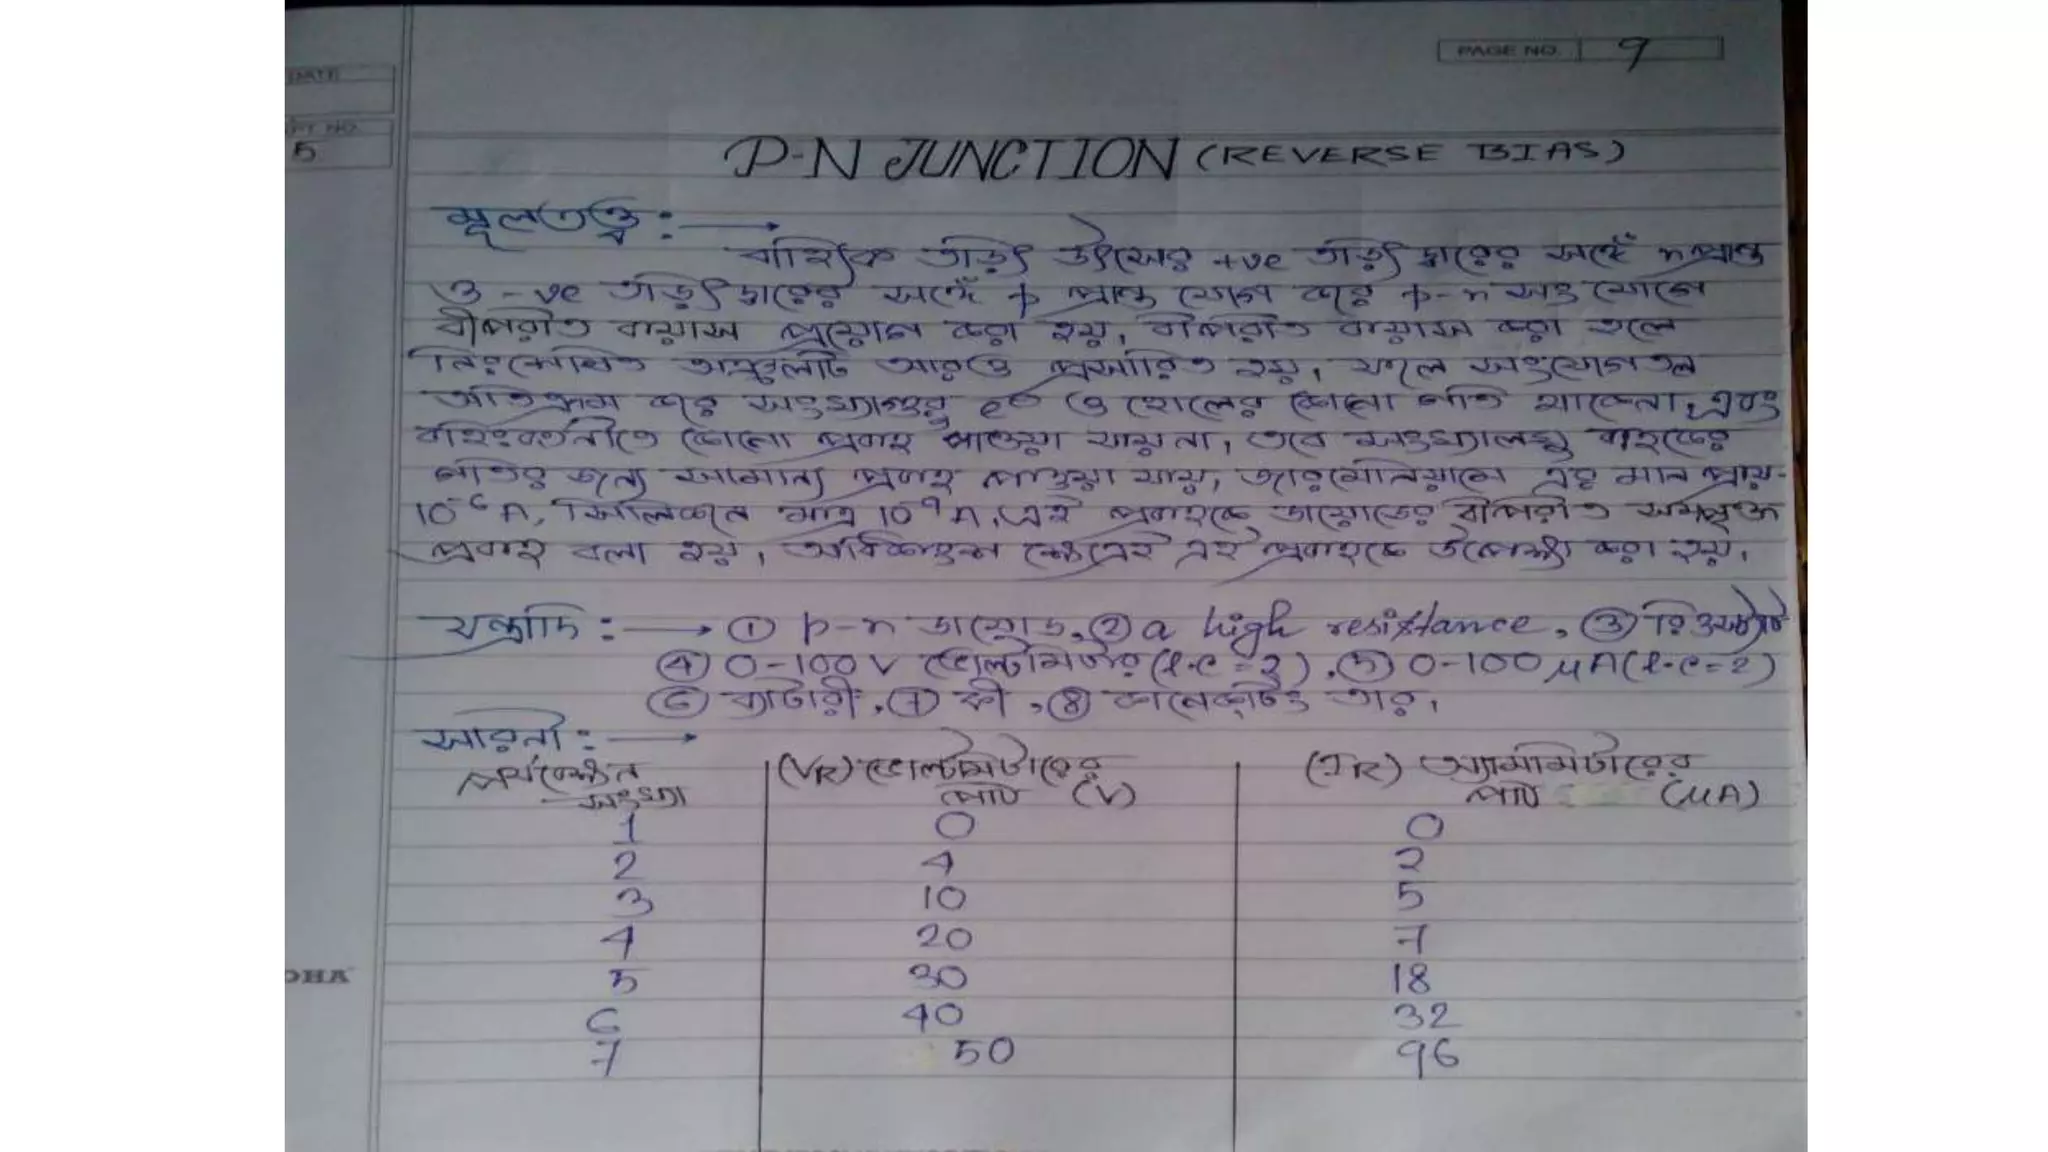 PAGE NO. 9
DATE
PT NO.
5
P-N JUNCTION (REVERSE BIAS)
মূলতত্ত্ব :→
বাহ্যিক তড়িৎ উৎসের +ve তড়িৎ দ্বারের সঙ্গেঁ n প্রান্ত
ও -ve তড়িৎ দ্বারের সঙ্গেঁ p প্রান্ত যোগ করে p-n সংযোগে
বীপরীত বায়াস প্রয়োগ করা হয়, বীপরীত বায়াস করা হলে
নিঃশেষিত অঞ্চলটি আরও প্রসারিত হয়, ফলে সংযোগতল
অতিক্রম করে সংখ্যাগুরু e ও হোলের কোনো গতি থাকেনা, এবং
বহিঃবর্তনীতে কোনো প্রবাহ পাওয়া যায়না, তবে সংখ্যালঘু বাহকের
গতির জন্য সামান্য প্রবাহ পাওয়া যায়, জারমেনিয়ামে এর মান প্রায়-
10⁻⁶ A, সিলিকনে মাত্র 10⁻⁹ A, এই প্রবাহকে ডায়োডের বীপরীত সম্পৃক্ত
প্রবাহ বলা হয়, অধিকাংশ ক্ষেত্রেই এই প্রবাহকে উপেক্ষা করা হয়,
যন্ত্রাদি :→ ① p-n ডায়োড, ② a high resistance, ③ রিওস্টাট
④ 0-100V ভোল্টমিটার (l.c = 2), ⑤ 0-100 μA (l.c = 2)
⑥ ব্যাটারী, ⑦ কী, ⑧ কানেক্টিং তার,
সারনী :→
পর্যবেক্ষন (VR) ভোল্টমিটারের (IR) অ্যামমিটারের
সংখ্যা পাঠ (V) পাঠ (μA)
1 0 0
2 4 2
3 10 5
4 20 7
5 30 18
6 40 32
7 50 96
OHA